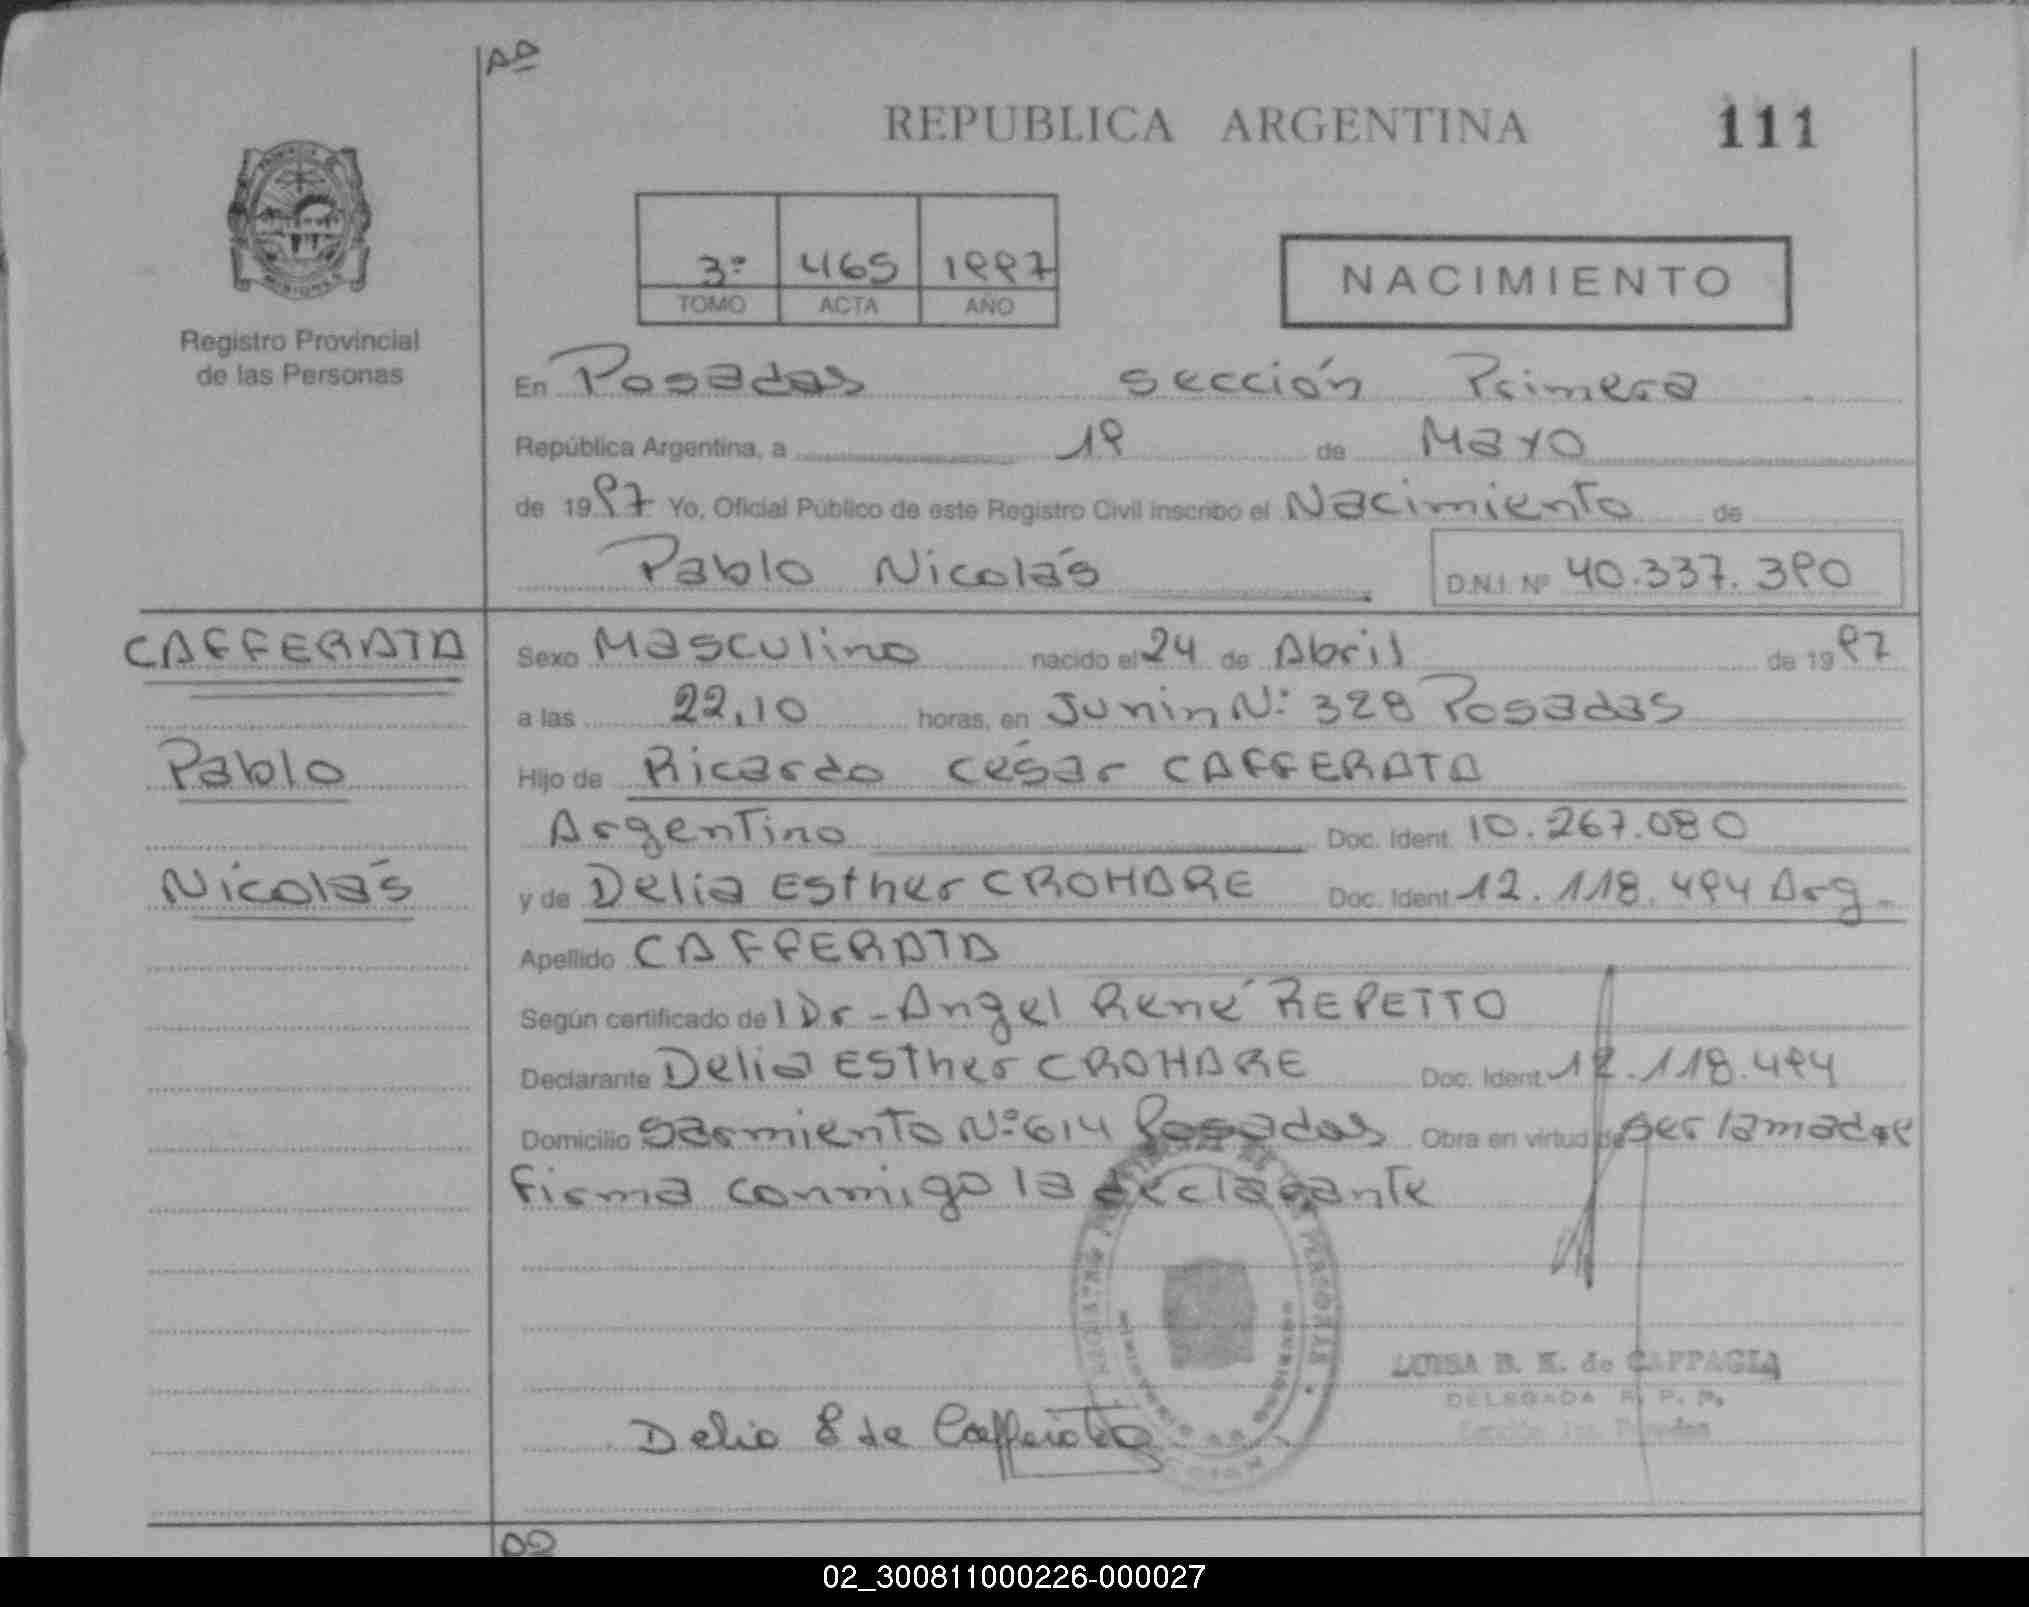 REPUBLICA ARGENTINA 111
3º 465 1997
TOMO ACTA AÑO
NACIMIENTO
Registro Provincial
de las Personas
En Posadas sección Primera
República Argentina, a 19 de Mayo
de 1997 Yo, Oficial Público de este Registro Civil inscribo el Nacimiento de
Pablo Nicolás D.N.I. Nº 40.337.390
CAFFERATA
Pablo
Nicolás
Sexo Masculino nacido el 24 de Abril de 1997
a las 22,10 horas, en Junin Nº 328 Posadas
Hijo de Ricardo César CAFFERATA
Argentino Doc. Ident. 10.267.080
y de Delia Esther CROHARE Doc. Ident 12.118.494 Arg.
Apellido CAFFERATA
Según certificado del Dr- Angel René REPETTO
Declarante Delia Esther CROHARE Doc. Ident 12.118.494
Domicilio Sarmiento Nº 614 Posadas Obra en virtud de ser la madre
firma conmigo la declarante
LUISA R. K. de CAPPAGLI
DELEGADA R. P. P.
Delia E de Cafferata
02_300811000226-000027